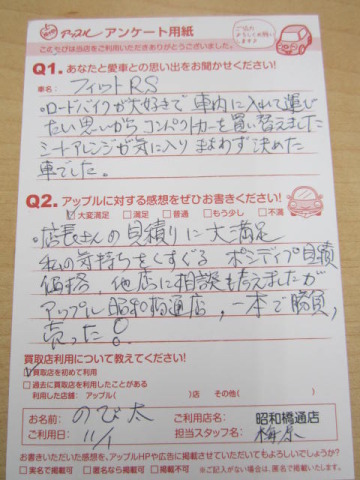 アップル アンケート用紙
このたびは当店をご利用いただきありがとうございました。
ご協力よろしくお願いします♪
Q1. あなたと愛車との思い出をお聞かせください!
車名: フィットRS
・ロードバイクが大好きで車内に入れて運び
たい思いから コンパクトカーを買い替えました
シートアレンジが気に入り まよわず決めた
車でした。
Q2. アップルに対する感想をぜひお書きください!
☑大変満足 □満足 □普通 □もう少し □不満
・店長さんの見積りに大満足
私の気持ちをくすぐる
価格、他店に相談も考えましたが
アップル昭和橋通店、一本で勝負、
売った!
買取店利用について教えてください!
☑買取を初めて利用
□過去に買取を利用したことがある
利用した店舗: アップル( )店 その他( )
お名前: のび太 ご利用店名: 昭和橋通店
ご利用日: 11/1 担当スタッフ名:
お書きいただいた感想を、アップルHPや広告に掲載させていただいてもよろしいでしょうか?
□実名で掲載可 □匿名なら掲載可 □掲載不可 ※ご記入がない場合は、匿名で掲載いたします。